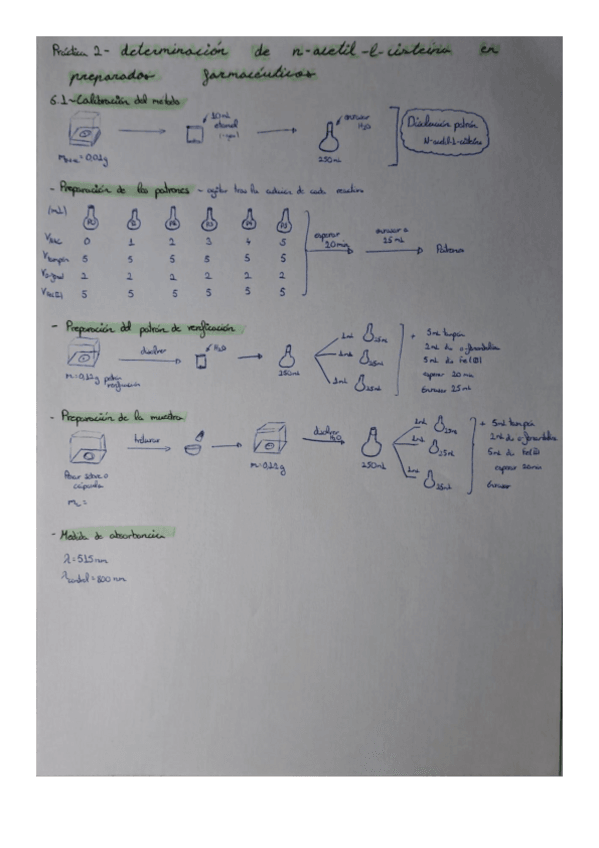 Práctica 2- determinación de n-acetil-l-cisteína en
preparados farmacéuticos
6.1- Calibración del método
10mL
etanol
enrasar
H2O
250mL
Disolución patrón
N-acetil-L-cisteína
- Preparación de los patrones - agitar tras la adición de cada reactivo
(mL)
0 1 2 3 4 5
Vtampón 5 5 5 5 5 5
2 2 2 2 2 2
5 5 5 5 5 5
esperar
20min
enrasar a
25mL
Patrones
- Preparación del patrón de verificación
m=0,12g patrón
verificación
disolver
H2O
250mL
1mL
25mL
1mL
25mL
1mL
25mL
+ 5mL tampón
2mL de o-fenantrolina
5mL de Fe(III)
esperar 20 min
Enrasar 25mL
- Preparación de la muestra
Pesar sobre o
cápsula
triturar
m=0,12g
disolver
H2O
250mL
1mL
25mL
1mL
25mL
1mL
25mL
+ 5mL tampón
2mL de o-fenantrolina
5mL de Fe(III)
esperar 20min
Enrasar
- Medida de absorbancia
λ=515nm